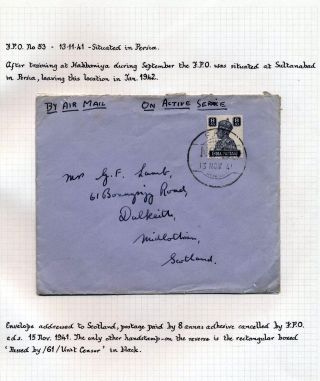 F.P.O. No 53 - 13·11·41 - Situated in Persia.
After training at Habbaniya during September the F.P.O. was situated at Sultanabad
in Persia, leaving this location in Jan. 1942.
BY AIR MAIL ON ACTIVE SERVICE
INDIA POSTAGE
15 NOV 41
Mrs G. F. Lamb,
61 Road,
Dalkeith,
Midlothian,
Scotland.
Envelope addressed to Scotland, postage paid by 8 annas adhesive cancelled by F.P.O.
c.d.s. 15 Nov. 1941. The only other handstamp on the reverse is the rectangular boxed
'Passed by /61/ Unit Censor' in black.